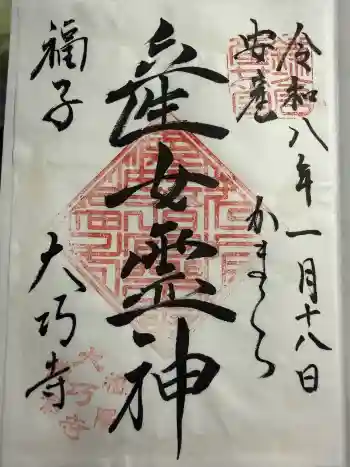 令和八年一月十八日
安産
かまくら
産女霊神
福子
大巧寺
大巧寺